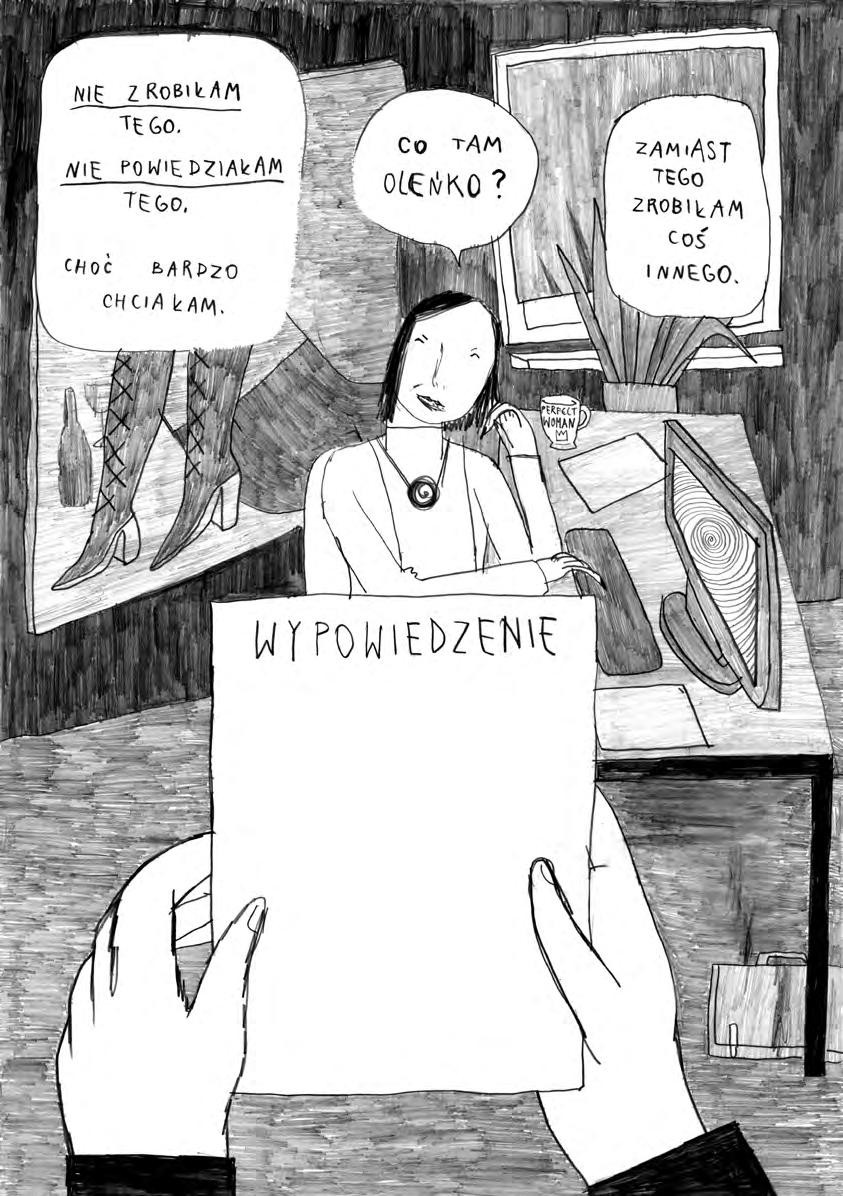 NIE ZROBIŁAM
TEGO.
NIE POWIEDZIAŁAM
TEGO.
CHOĆ BARDZO
CHCIAŁAM.
CO TAM
OLEŃKO?
ZAMIAST
TEGO
ZROBIŁAM
COŚ
INNEGO.
PERFECT
WOMAN
WYPOWIEDZENIE